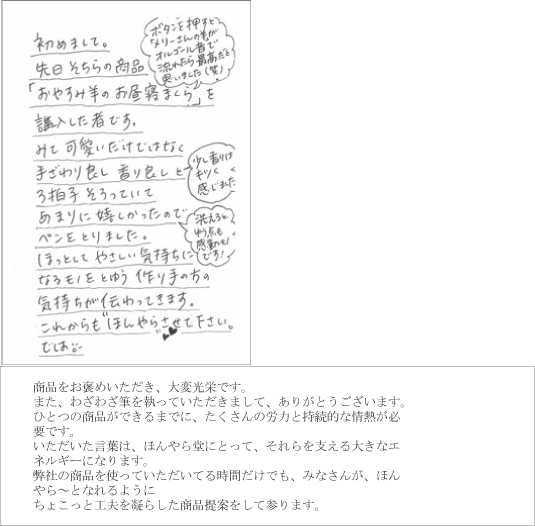 初めまして。
先日そちらの商品
「おやすみ羊のお昼寝まくら」を
購入した者です。
みて可愛いだけではなく
手ざわり良し香り良しと
3拍子そろっていて
あまりに嬉しかったので
ペンをとりました。
ほっとしてやさしい気持ちに
なるモノをとゆう作り手の方の
気持ちが伝わってきます。
これからも"ほんやら"させて下さい。
では。
ボタンを押すと
「メリーさんの羊」が
オルゴール音で
流れたら最高だと
思いました(笑)
少し香りは
キツく
感じました
洗えると
ゆう点も
感動も
です!
商品をお褒めいただき、大変光栄です。
また、わざわざ筆を執っていただきまして、ありがとうございます。
ひとつの商品ができるまでに、たくさんの労力と持続的な情熱が必
要です。
いただいた言葉は、ほんやら堂にとって、それらを支える大きなエ
ネルギーになります。
弊社の商品を使っていただいてる時間だけでも、みなさんが、ほん
やら～となれるように
ちょこっと工夫を凝らした商品提案をして参ります。